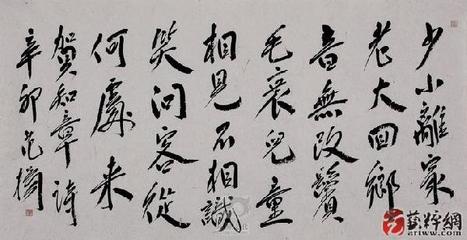 少小離家
老大回鄉
音無改鬢
毛衰兒童
相見不相識
笑問客從
何處来
賀知章詩
辛卯范
藝粹網